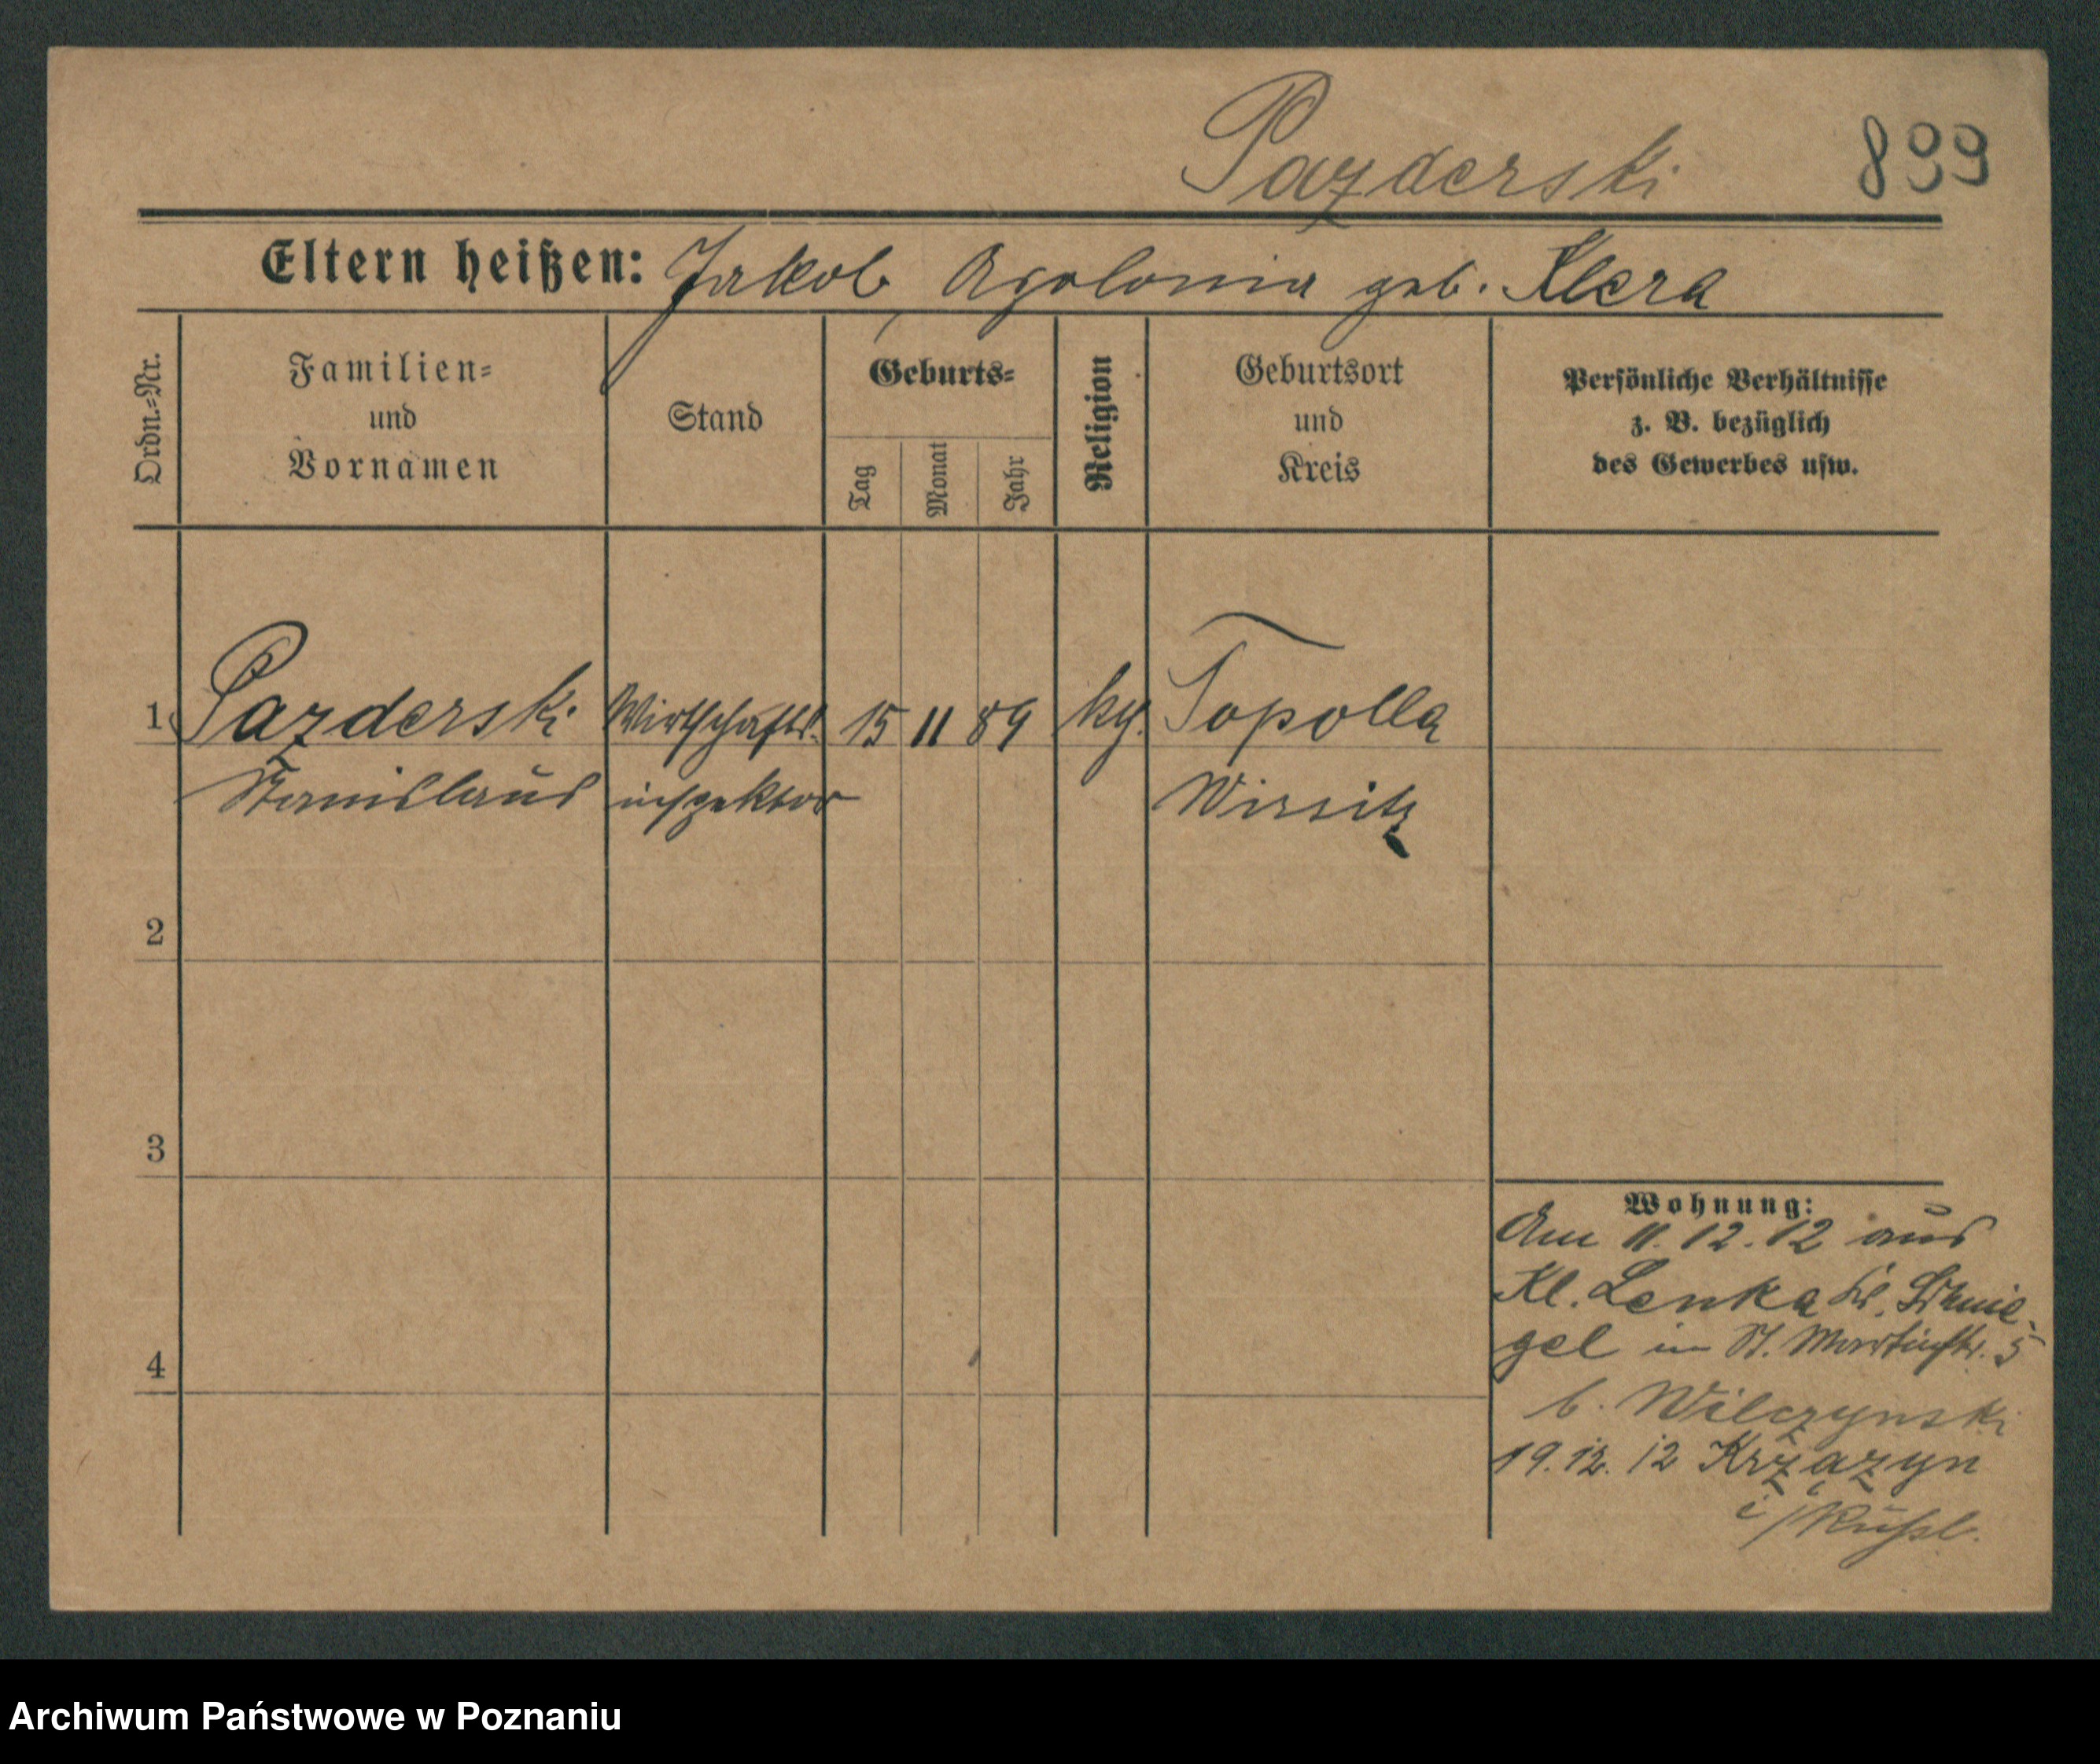 Pazderski 899
Eltern heißen: Jakob, Apolonia geb. Klera
Ordn.-Nr.
Familien-
und
Vornamen
Stand
Geburts-
Tag
Monat
Jahr
Religion
Geburtsort
und
Kreis
Persönliche Verhältnisse
z. B. bezüglich
des Gewerbes usw.
1 Pazderski Wirtschafts- 15 11 89 kg. Topolla
Stanislaus inspektor Wirsitz
2
3
4
Wohnung:
Am 11.12.12 aus
Kl. Lenka Kr. Schmie-
gel in St. Martinstr. 5
b. Wilczynski
19.12.12
i/Rußl.